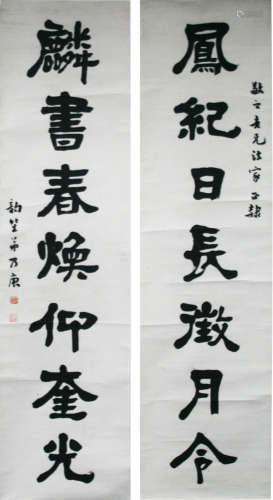 敬之吾兄法家正隸
鳳紀日長徵月令
麟書春煥仰奎光
韵笙弟乃庚